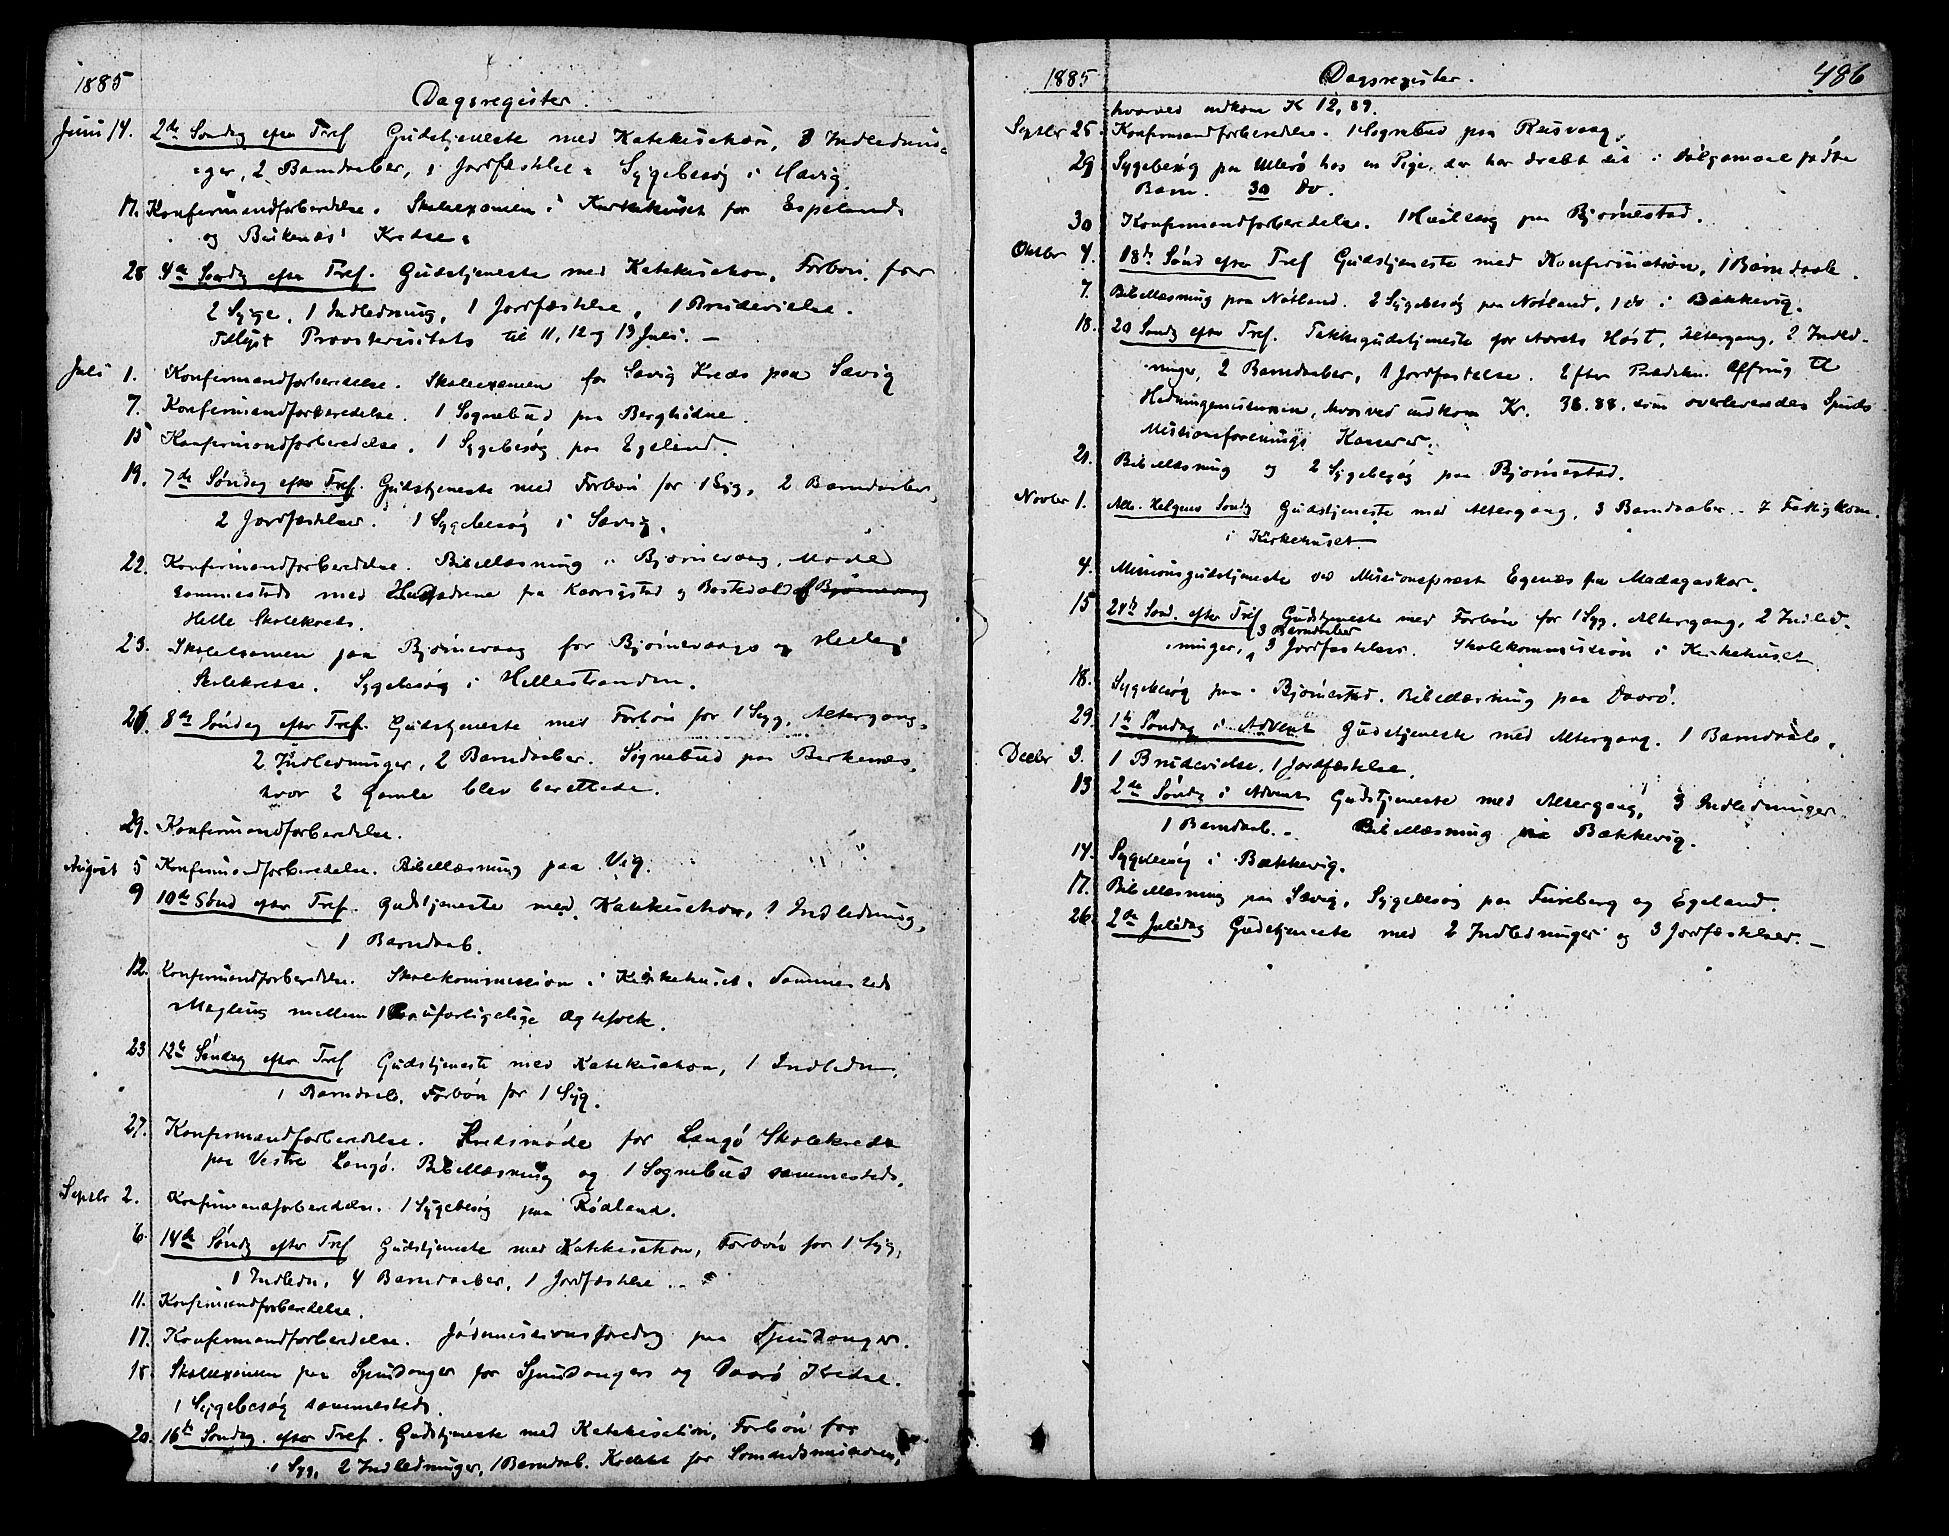 1885
Dagsregister.
Juni 14. 2den Søndag efter Tref Gudstjeneste med Katekisation, 3 Indlednin-
ger, 2 Barndaaber, 1 Jordfæstelse. Sygebesøg i Hævig.
17. Konfirmandforberedelse. Skoleexamen i Kirkehuset for Espelands
og Birkenæs' Kredse.
28 4de Søndag efter Tref. Gudstjeneste med Katekisation, Forbøn for
2 Syge, 1 Indledning, 1 Jordfæstelse, 1 Brudevielse.
Tillyst Provstevisitats til 11, 12 og 13 Juli. —
Juli 1. Konfirmandforberedelse. Skoleexamen for Sævig Kreds paa Sævig
7. Konfirmandforberedelse. 1 Sognebud paa
15 Konfirmandforberedelse. 1 Sygebesøg paa Egeland.
19. 7de Søndag efter Tref. Gudstjeneste med Forbøn for 1 Syg, 2 Barndaaber,
2 Jordfæstelser. 1 Sygebesøg i Sævig.
22. Konfirmandforberedelse. Bibellæsning i Bjørnevaag, Møde
sammesteds med fra og
Helle Skolekreds.
23. Skoleexamen paa Bjørnevaag for Bjørnevaags og Helle
Skolekredse. Sygebesøg i Hellestranden.
26. 8de Søndag efter Tref. Gudstjeneste med Forbøn for 1 Syg, Altergang,
2 Indledninger, 2 Barndaaber. Sognebud paa Berkenæs,
hvor 2 Gamle blev berettede.
29. Konfirmandforberedelse.
August 5 Konfirmandforberedelse. Bibellæsning paa Vig.
9 10de Sønd efter Tref. Gudstjeneste med Katekisation, 1 Indledning,
1 Barndaab.
12. Konfirmandforberedelse. Skolekommission i Kirkehuset. Sammesteds
Mægling mellem 1 Par uforligelige Ægtefolk.
23 12te Søndag efter Tref Gudstjeneste med Katekisation, 1 Indledn,
1 Barndaab. Forbøn for 1 Syg.
27. Konfirmandforberedelse. Kredsmøde for Langø Skolekreds
paa Vestre Langø. Bibellæsning og 1 Sognebud sammesteds.
Septbr 2. Konfirmandforberedelse. 1 Sygebesøg paa Rødland.
6. 14de Søndg efter Tref Gudstjeneste med Katekisation, Forbøn for 1 Syg,
1 Indledn, 4 Barndaaber, 1 Jordfæstelse.
11. Konfirmandforberedelse.
17. Konfirmandforberedelse. Jødemissionsforedrag paa Spindanger.
18 Skoleexamen paa Spindanger for Spindangers og Daarø Kredse.
1 Sygebesøg sammesteds.
20. 16de Søndag efter Tref. Gudstjeneste med Katekisation, Forbøn for
1 Syg, 2 Indledninger, 1 Barndaab. for Sømandsmissionen,
1885
Dagsregister.
486
hvorved indkom K 12,89.
Septbr 25. Konfirmandforberedelse. 1 Sognebud paa Reisvaag.
29 Sygebesøg paa Ullerø hos en Pige, der har dræbt sit i Dølgsmaal fødte
Barn. 30 do.
30 Konfirmandforberedelse. 1 paa Bjørnestad.
Oktbr 4. 18de Sønd efter Tref Gudstjeneste med Konfirmation, 1 Barndaab.
7. Bibellæsning paa Nøtland. 2 Sygebesøg paa Nøtland, 1 do i Bækkevig.
18. 20 Søndg efter Tref. Takkegudstjeneste for Aarets Høst, Altergang, 2 Indled-
ninger, 2 Barndaaber, 1 Jordfæstelse. Efter Prædiken Offring til
Hedningemissionen, hvorved indkom Kr. 38.88. som overleveredes Spinds
Missionsforenings Kasserer.
21. Bibellæsning og 2 Sygebesøg paa Bjørnestad.
Novbr 1. Alle Helgens Søndg Gudstjeneste med Altergang, 3 Barndaaber. Fattigkom.
i Kirkehuset.
4. Missionsgudstjeneste ved Missionsprest Egenæs fra Madagaskar.
15 24de Sønd. efter Tref Gudstjeneste med Forbøn for 1 Syg, Altergang, 2 Indled-
ninger, 3 Barndaaber 3 Jordfæstelser. Skolekommission i Kirkehuset.
18. Sygebesøg paa Bjørnestad. Bibellæsning paa Daarø.
29. 1ste Søndag i Advent Gudstjeneste med Altergang. 1 Barndaab.
Decbr 3. 1 Brudevielse, 1 Jordfæstelse.
13 2den Søndg i Advent Gudstjeneste med Altergang, 3 Indledninger
1 Barndaab. Bibellæsning Bækkevig.
14. Sygebesøg i Bækkevig.
17. Bibellæsning paa Sævig, Sygebesøg paa Fureberg og Egeland.
26. 2den Juledag Gudstjeneste med 2 Indledninger og 3 Jordfæstelser. —